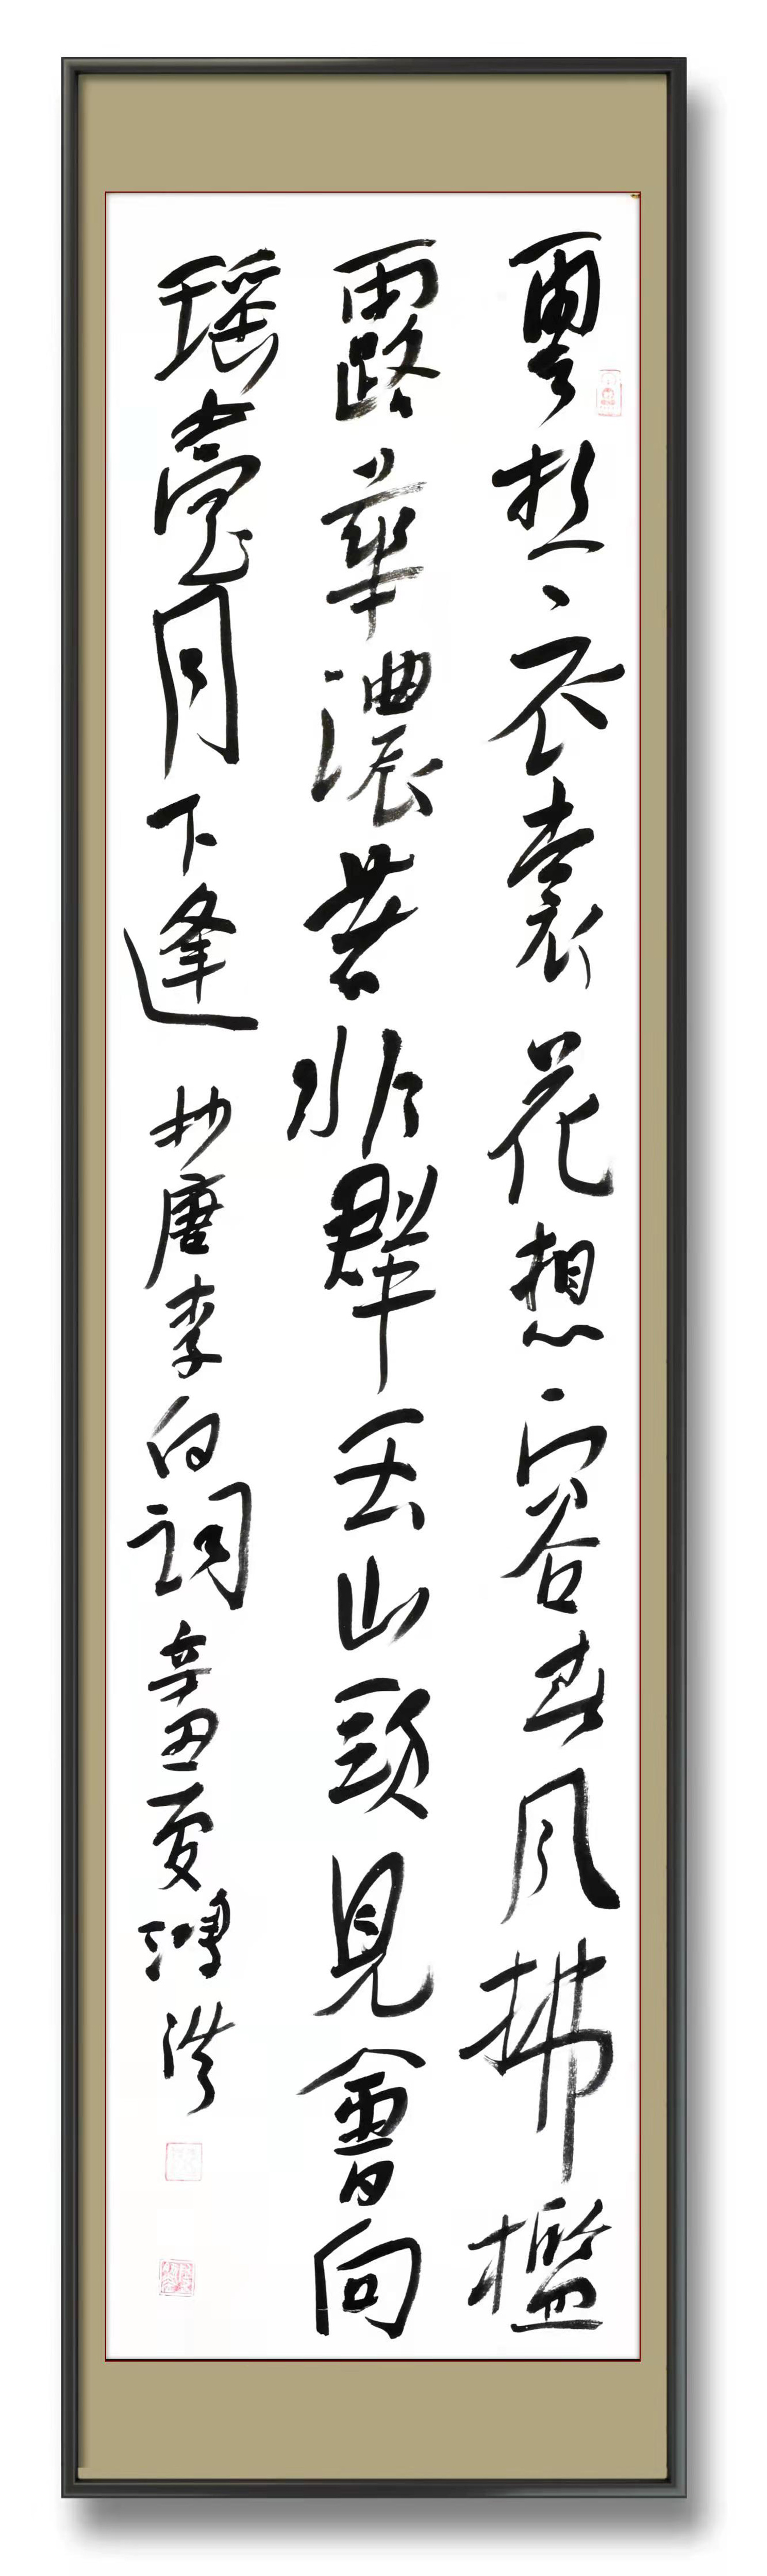 雲想衣裳花想容春風拂檻
露華濃若非群玉山頭見會向
瑶臺月下逢 抄唐李白詞 辛丑夏鴻